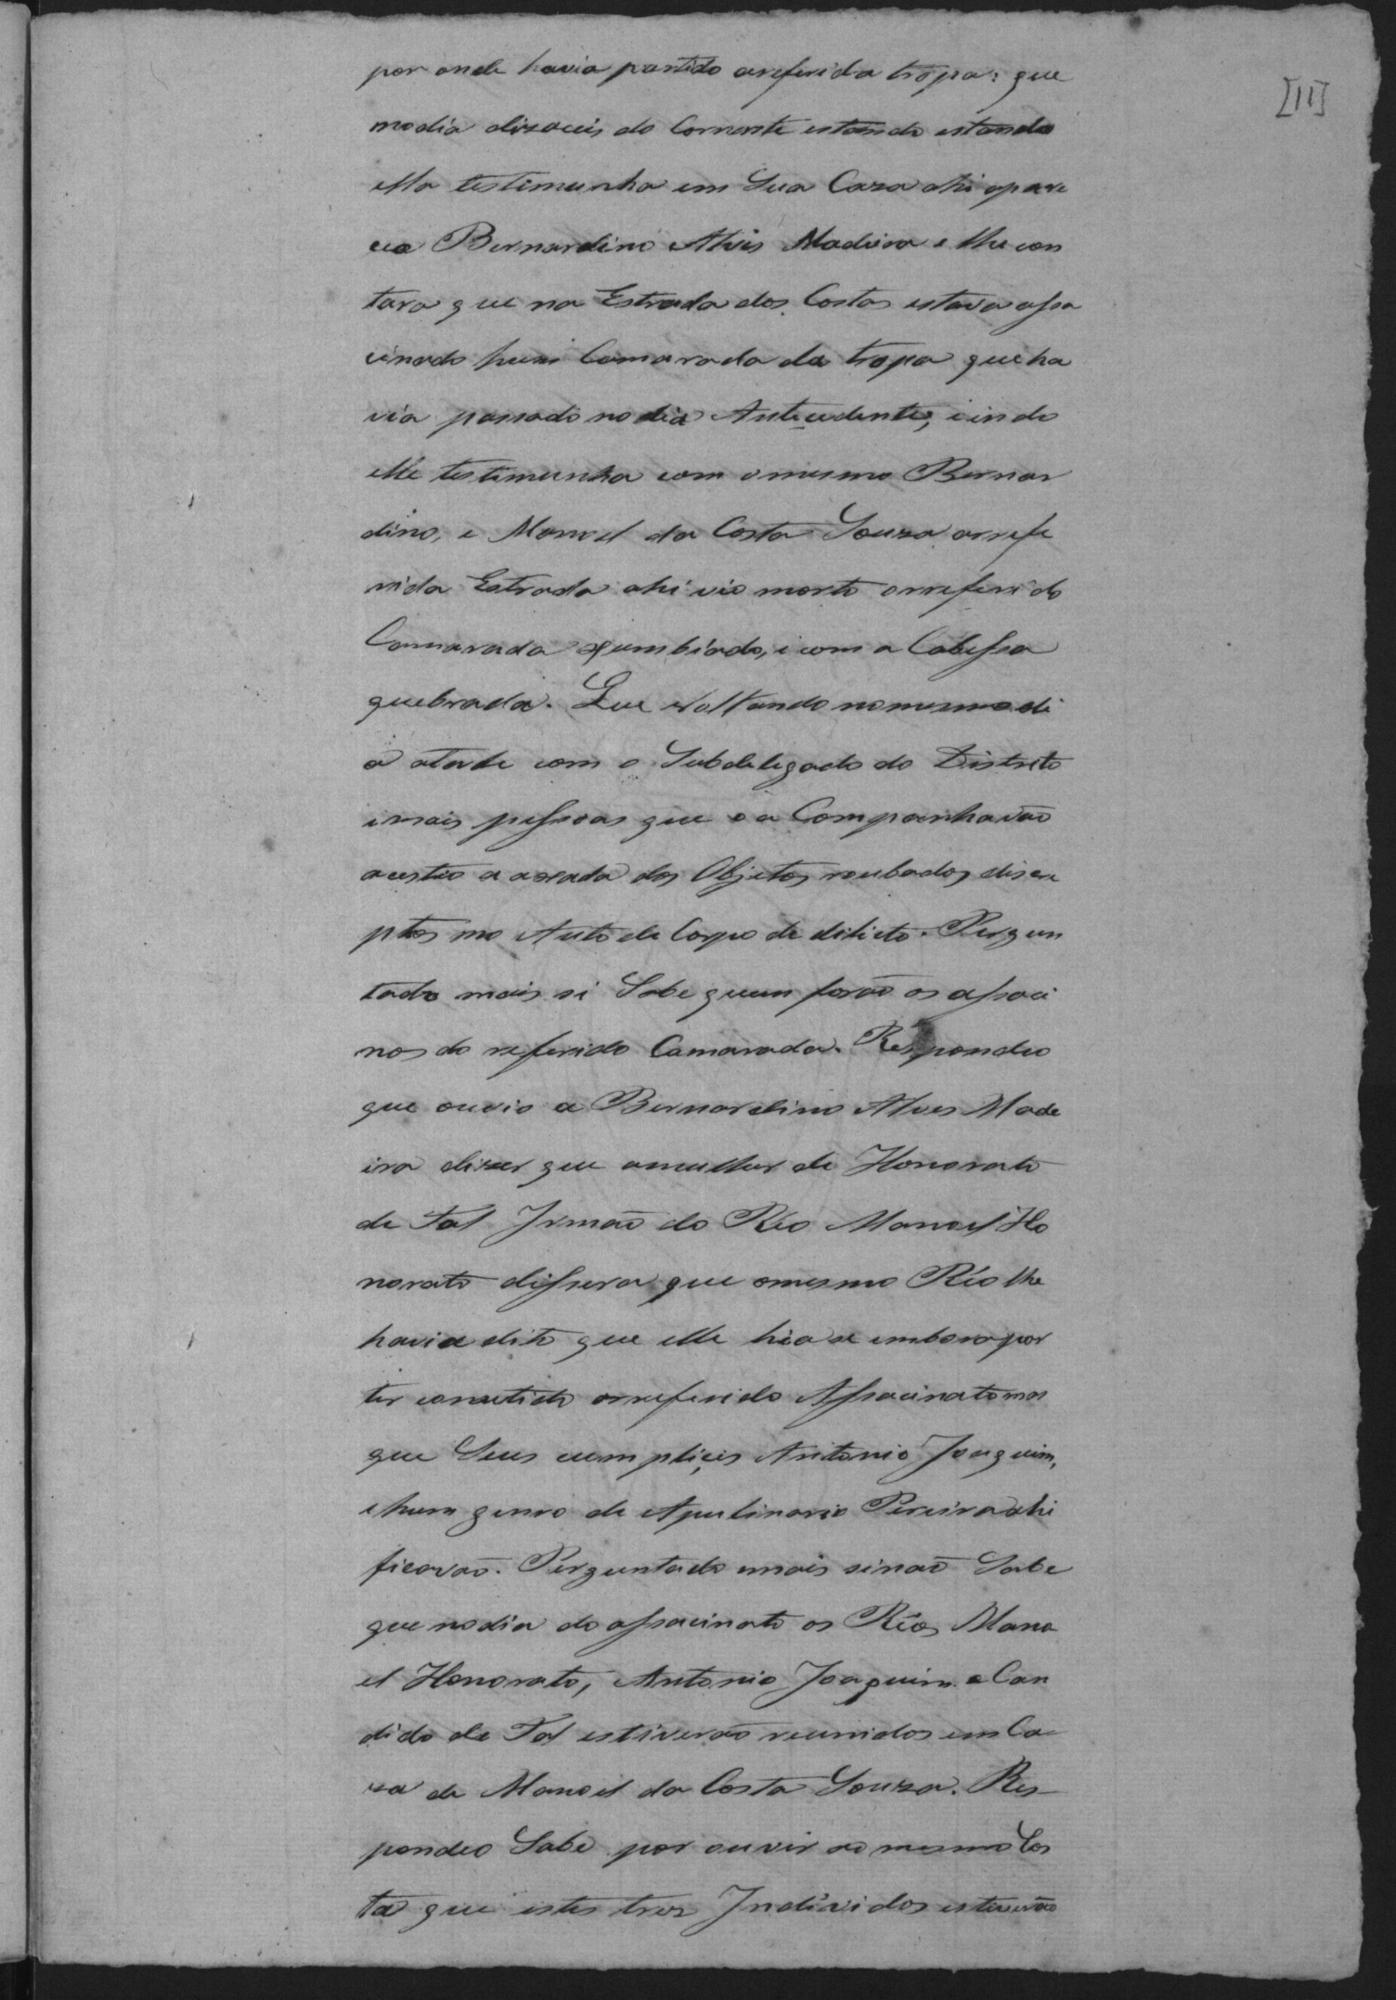 [11]
por onde havia partido areferida trópa: que
nodia dizaceis do Corrente estando estando
ella testimunha em Sua Caza ahi apare
ceo Bernardino Alvis Madeira e lhe con
tara que na Estrada dos Costas estava assa
cinado hum Camarada da tropa que ha
via passado no dia Antecedente, i indo
elle testimunha com o mesmo Bernar
dino, e Manoel da Costa Souza arrefe
rida Estrada ahi vio morto orreferido
Camarada xumbiado, i com a Cabessa
quebrada. Que voltando nomesmo di
a atarde com o Subdelegado do Distrito
imais pessoas que o a Companhavão
acestio a axada dos Objetos roubados discri
ptos no Auto de Corpo de dilicto. Pergun
tado mais si Sabe quem forão os assaci
nos do referido Camarada. Respondeo
que ouvio a Bernardino Alves Made
ira dizer que amulher de Honorato
de Tal Irmão do Réo Manoel Ho
norato dissera que omesmo Réo lhe
havia dito que elle hia se embora por
ter cometido orreferido Assacinato mas
que Seus cumplices Antonio Joaquim,
ehum genro de Apulinario Pereira ahi
ficavão. Perguntado mais sinão Sabe
que nodia do assacinato os Réos Mano
el Honorato, Antonio Joaquim e Can
dido de Tal estiverão reunidos em Ca
za de Manoel da Costa Souza. Res-
pondeo Sabe por ouvir ao mesmo Cos
ta que estes trez Individos estiverão